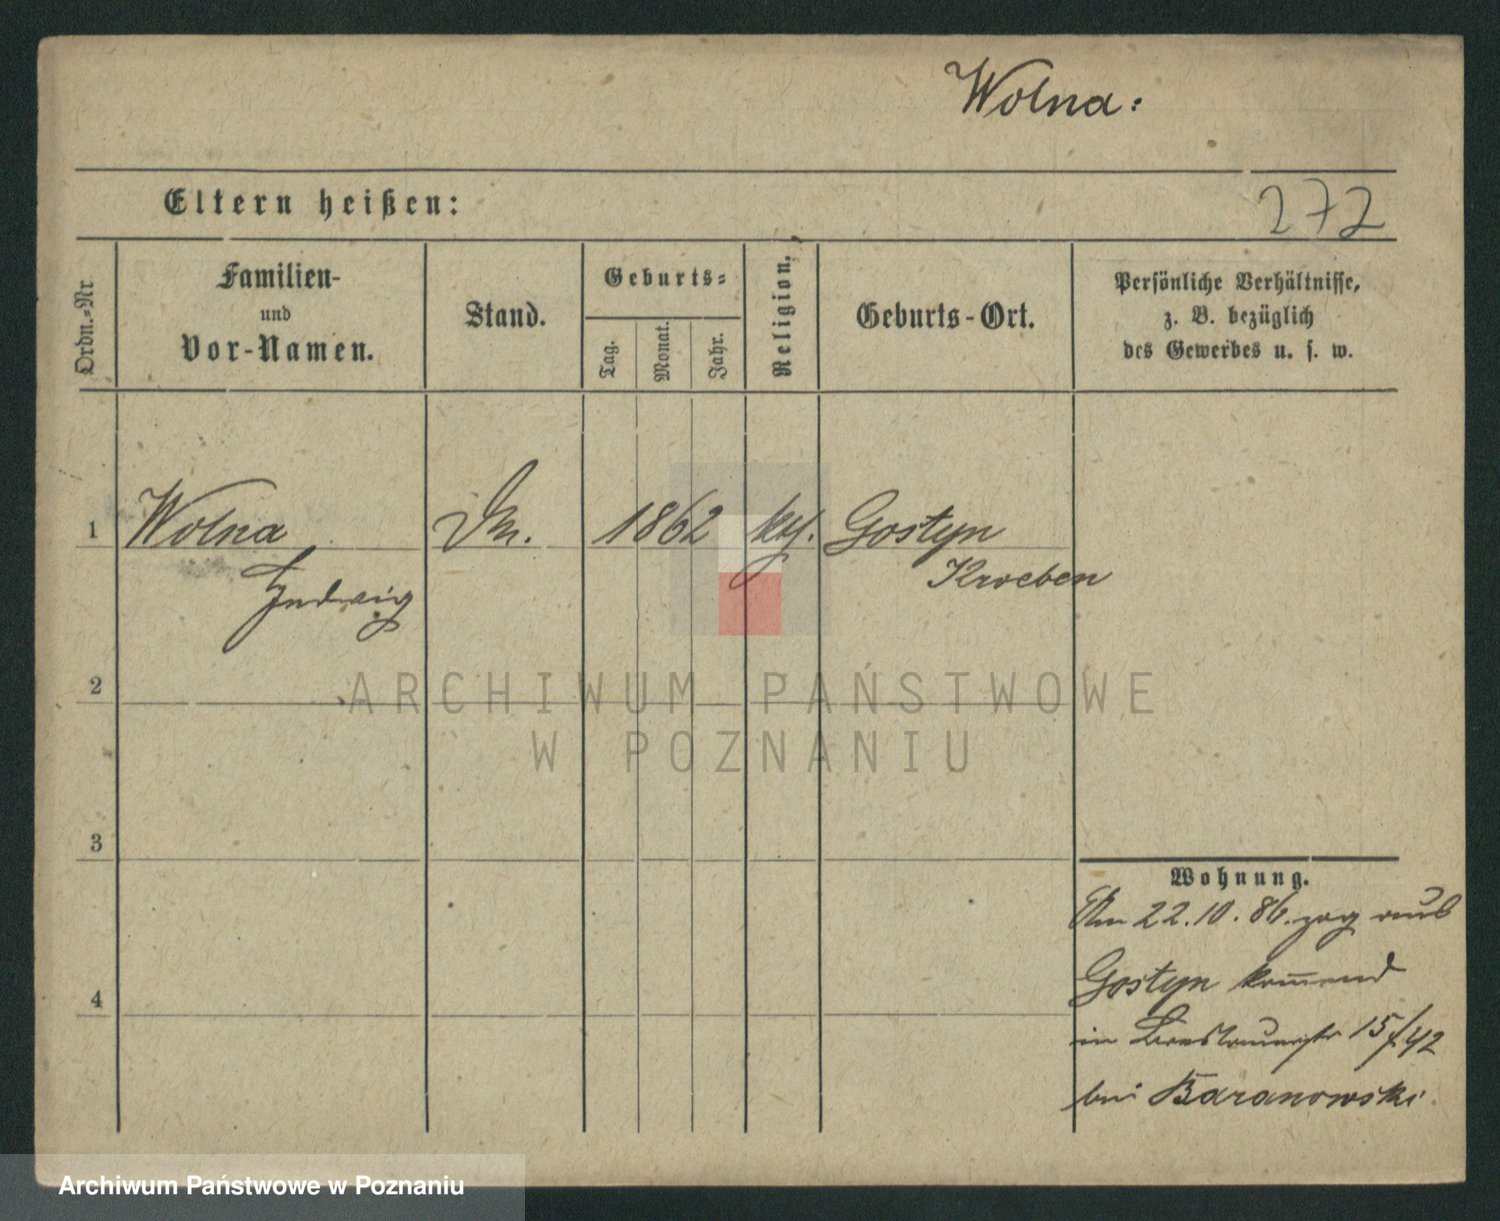 Wolna:
Eltern heißen:
272
Ordn.-Nr
Familien-
und
Vor-Namen.
Stand.
Geburts-
Tag.
Monat.
Jahr.
Religion.
Geburts-Ort.
Persönliche Verhältnisse,
z. B. bezüglich
des Gewerbes u. s. w.
1
Wolna
Hedwig
1862
kth.
Gostyn
Kroeben
2
3
4
Wohnung.
Am 22.10.86. zog aus
Gostyn kom̅end
in 15/42
bei Baranowski
ARCHIWUM PAŃSTWOWE
W POZNANIU
Archiwum Państwowe w Poznaniu